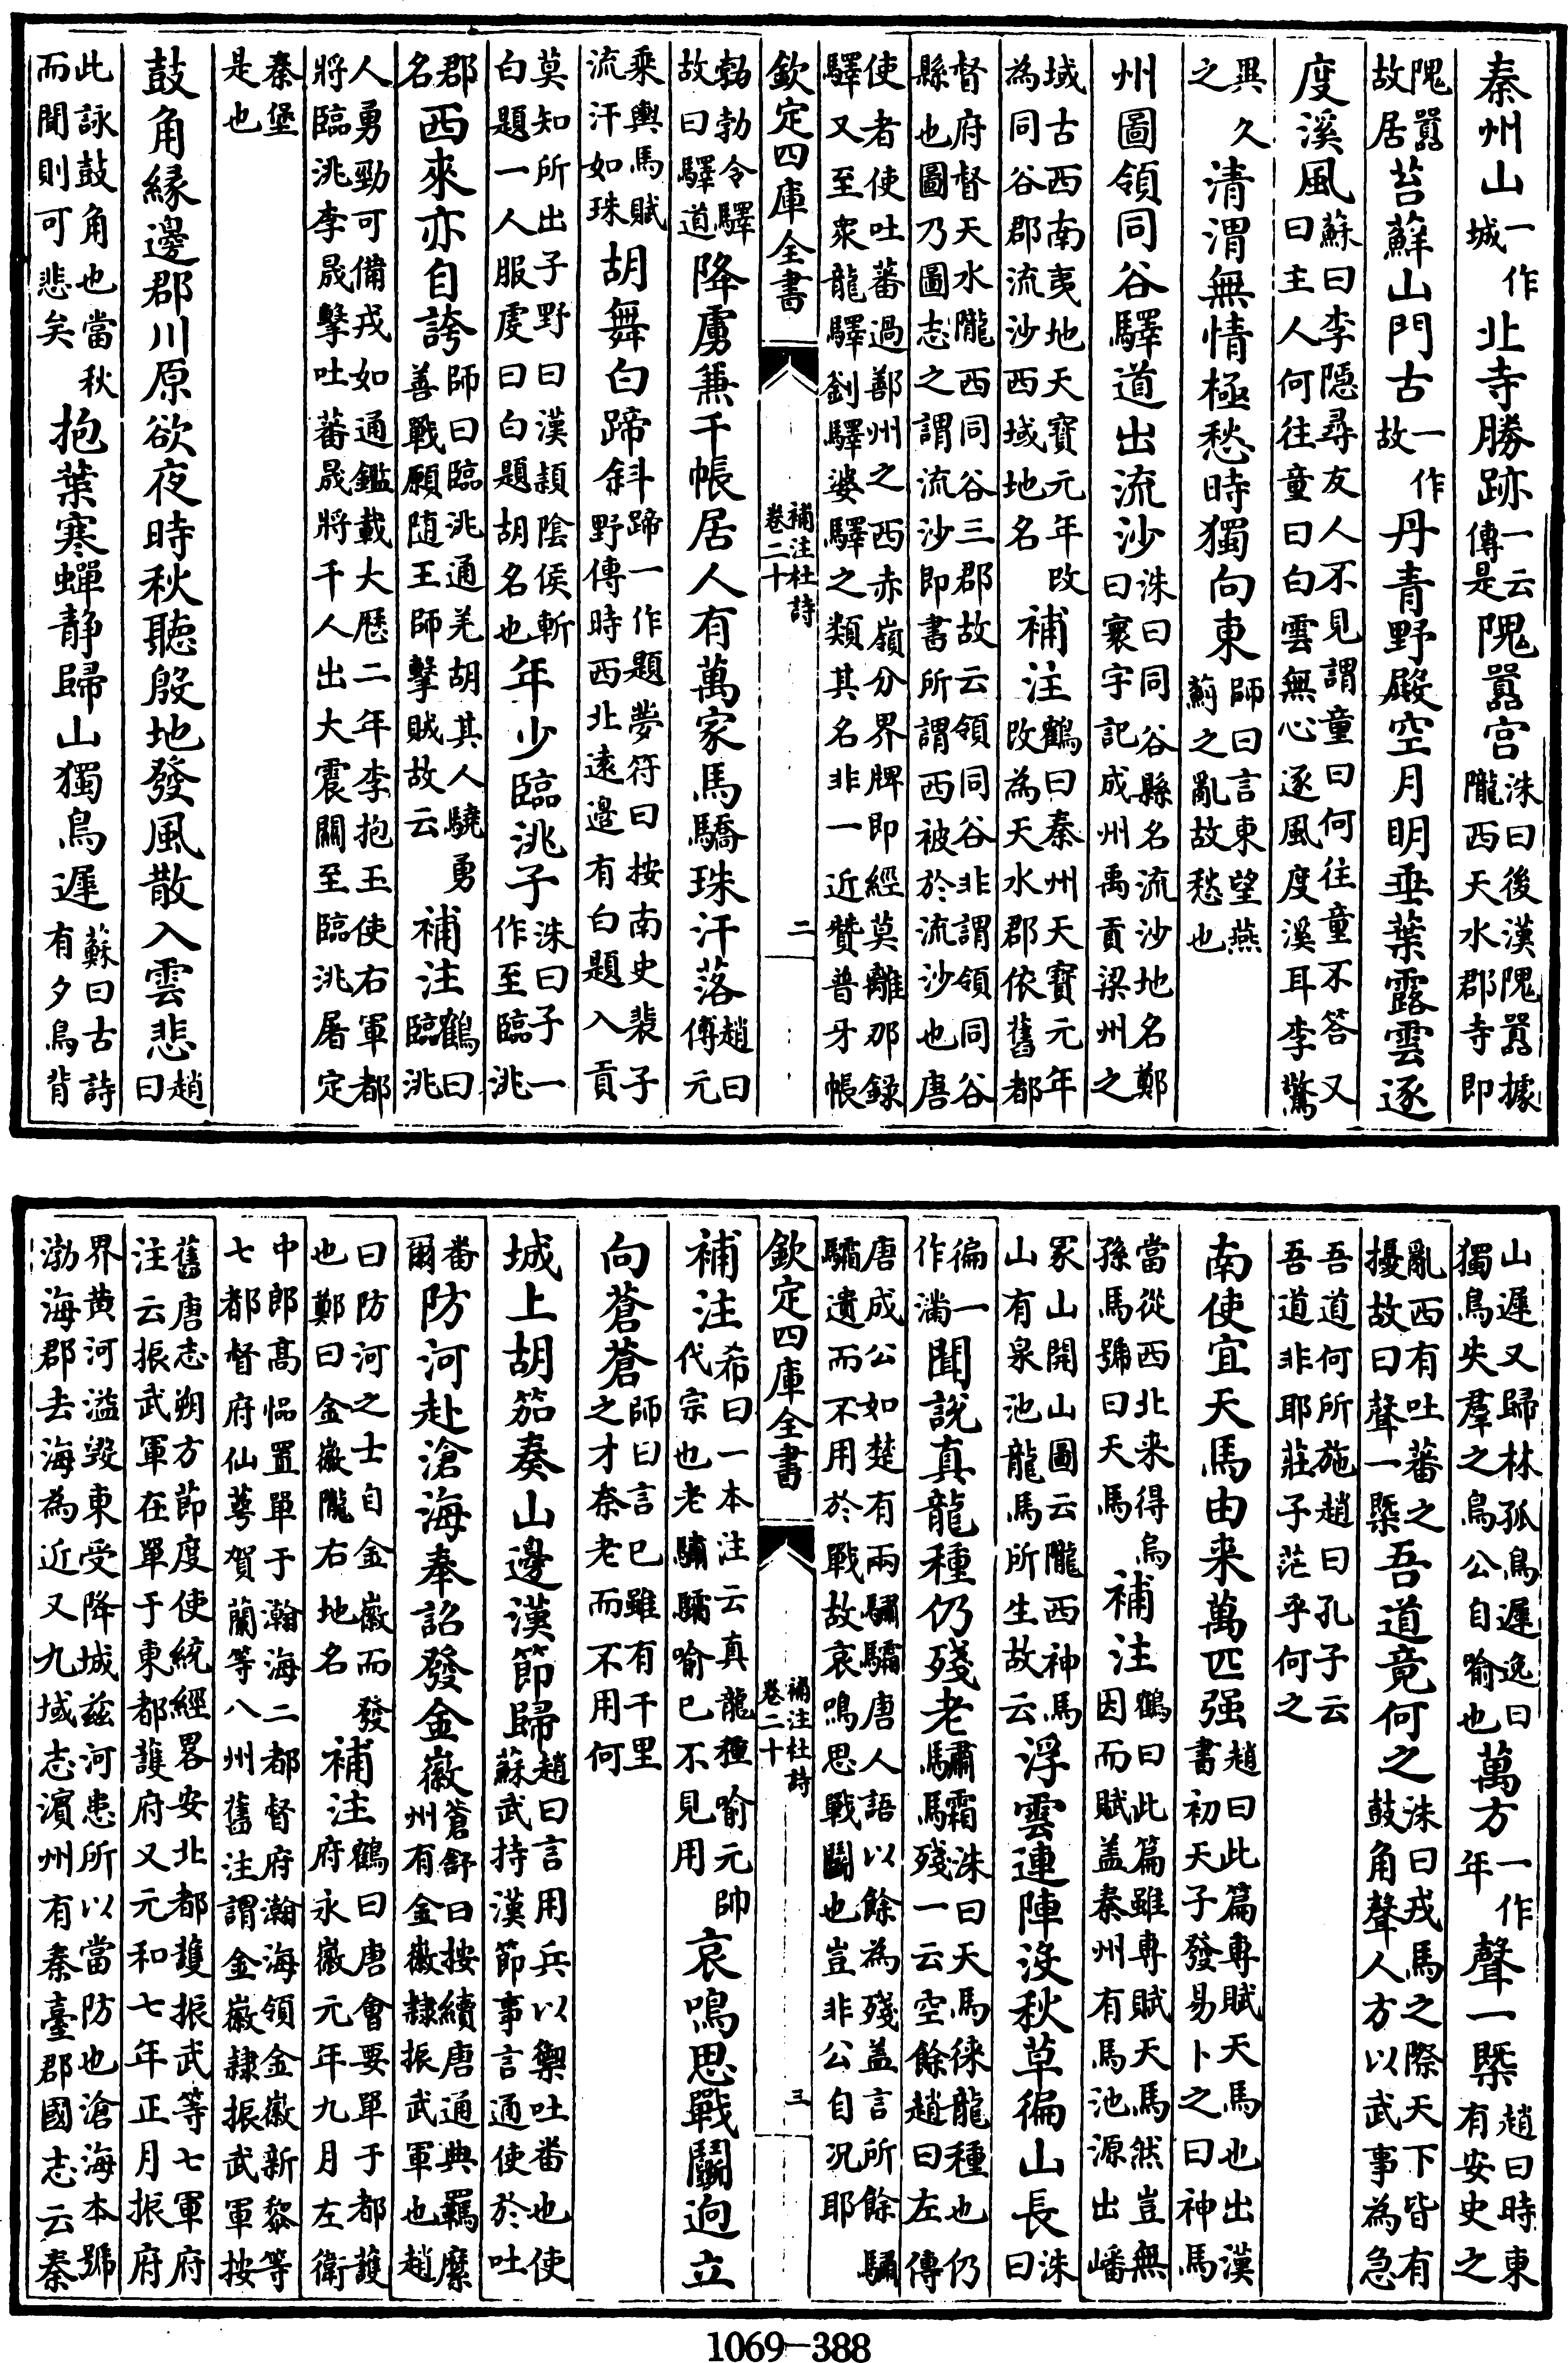 秦州山一作城北寺勝跡一云傳是隗囂宫洙曰後漢隗囂據隴西天水郡寺即
隗囂故居苔蘚山門古一作故丹青野殿空月明垂葉露雲逐
度溪風蘇曰李隠尋友人不見謂童曰何往童不答又曰主人何往童曰白雲無心逐風度溪耳李驚
異久之清渭無情極愁時獨向東師曰言東望燕薊之亂故愁也
州圖領同谷驛道出流沙洙曰同谷縣名流沙地名鄭曰寰宇記成州禹貢梁州之
域古西南夷地天寶元年改為同谷郡流沙西域地名補注鶴曰秦州天寶元年改為天水郡依舊都
督府督天水隴西同谷三郡故云領同谷非謂領同谷縣也圖乃圖志之謂流沙即書所謂西被於流沙也唐
使者使吐蕃過鄯州之西赤嶺分界牌即經莫離那錄驛又至衆龍驛劉驛婆驛之類其名非一近贊普牙帳
欽定四庫全書 補注杜詩卷二十 二
勃勃令驛故曰驛道降虜兼千帳居人有萬家馬驕珠汗落趙曰傅元
乘輿馬賦流汗如珠胡舞白蹄斜蹄一作題夢符曰按南史裴子野傳時西北遠邉有白題入貢
莫知所出子野曰漢頴陰侯斬白題一人服虔曰白題胡名也年少臨洮子洙曰子一作至臨洮
郡名西來亦自誇師曰臨洮通羌胡其人驍勇善戰願随王師擊賊故云補注鶴曰臨洮
人勇勁可備戎如通鑑載大歴二年李抱玉使右軍都將臨洮李晟擊吐蕃晟將千人出大震關至臨洮屠定
秦堡是也
鼓角緣邊郡川原欲夜時秋聽殷地發風散入雲悲趙曰
此詠鼓角也當秋而聞則可悲矣抱葉寒蟬静歸山獨鳥遲蘇曰古詩有夕鳥背
山遲又歸林孤鳥遲逸曰獨鳥失羣之鳥公自喻也萬方一作年聲一槩趙曰時東有安史之
亂西有吐蕃之擾故曰聲一槩吾道竟何之洙曰戎馬之際天下皆有鼓角聲人方以武事為急
吾道何所施趙曰孔子云吾道非耶莊子茫乎何之
南使宜天馬由来萬匹强趙曰此篇專賦天馬也出漢書初天子發易卜之曰神馬
當從西北来得烏孫馬號曰天馬補注鶴曰此篇雖專賦天馬然豈無因而賦盖秦州有馬池源出嶓
冡山開山圖云隴西神馬山有泉池龍馬所生故云浮雲連陣沒秋草徧山長洙曰
徧一作滿聞説真龍種仍殘老驌霜洙曰天馬徠龍種也仍馬殘一云空餘趙曰左傳
唐成公如楚有兩驌驦唐人語以餘為殘盖言所餘驌驦遺而不用於戰故哀鳴思戰鬭也豈非公自况耶
欽定四庫全書 補注杜詩卷二十 三
補注希曰一本注云真龍種喻元帥代宗也老驌驦喻已不見用哀鳴思戰鬭迥立
向蒼蒼師曰言已雖有千里之才奈老而不用何
城上胡笳奏山邊漢節歸趙曰言用兵以禦吐番也使蘇武持漢節事言通使於吐
番爾防河赴滄海奉詔發金徽蒼舒曰按續唐通典羈縻州有金徽隸振武軍也趙
曰防河之士自金徽而發也鄭曰金徽隴右地名補注鶴曰唐會要單于都護府永徽元年九月左衛
中郎髙偘置單于瀚海二都督府瀚海領金徽新黎等七都督府仙蕚賀蘭等八州舊注謂金徽隸振武軍按
舊唐志朔方節度使統經畧安北都護振武等七軍府注云振武軍在單于東都護府又元和七年正月振府
界黄河溢毁東受降城兹河患所以當防也滄海本號渤海郡去海為近又九域志濱州有秦臺郡國志云秦
1069—388